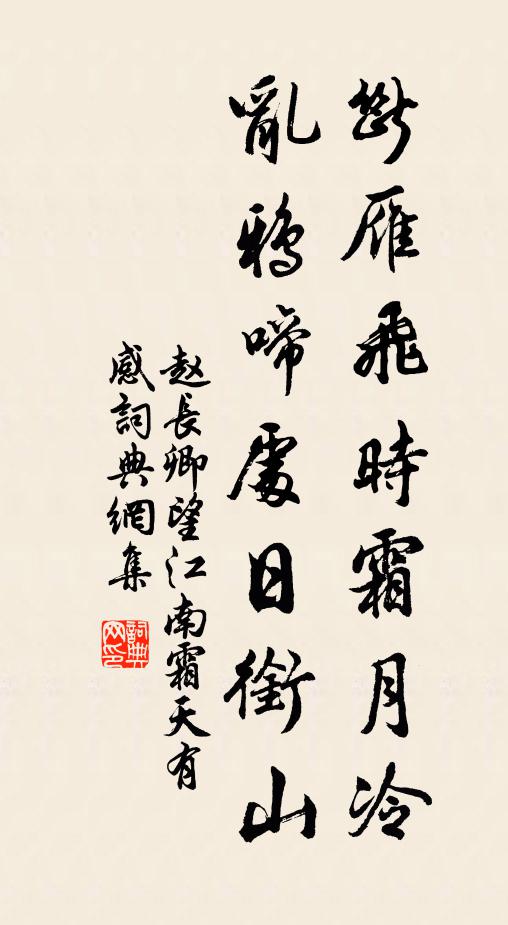 斷雁飛時霜月冷
亂鴉啼處日銜山
赵長卿望江南霜天有
感詞典網集
詞典
网印